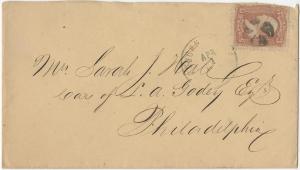 APR
Mrs Sarah J. Hale
care of L. A. Godey Esqr
Philadelphia